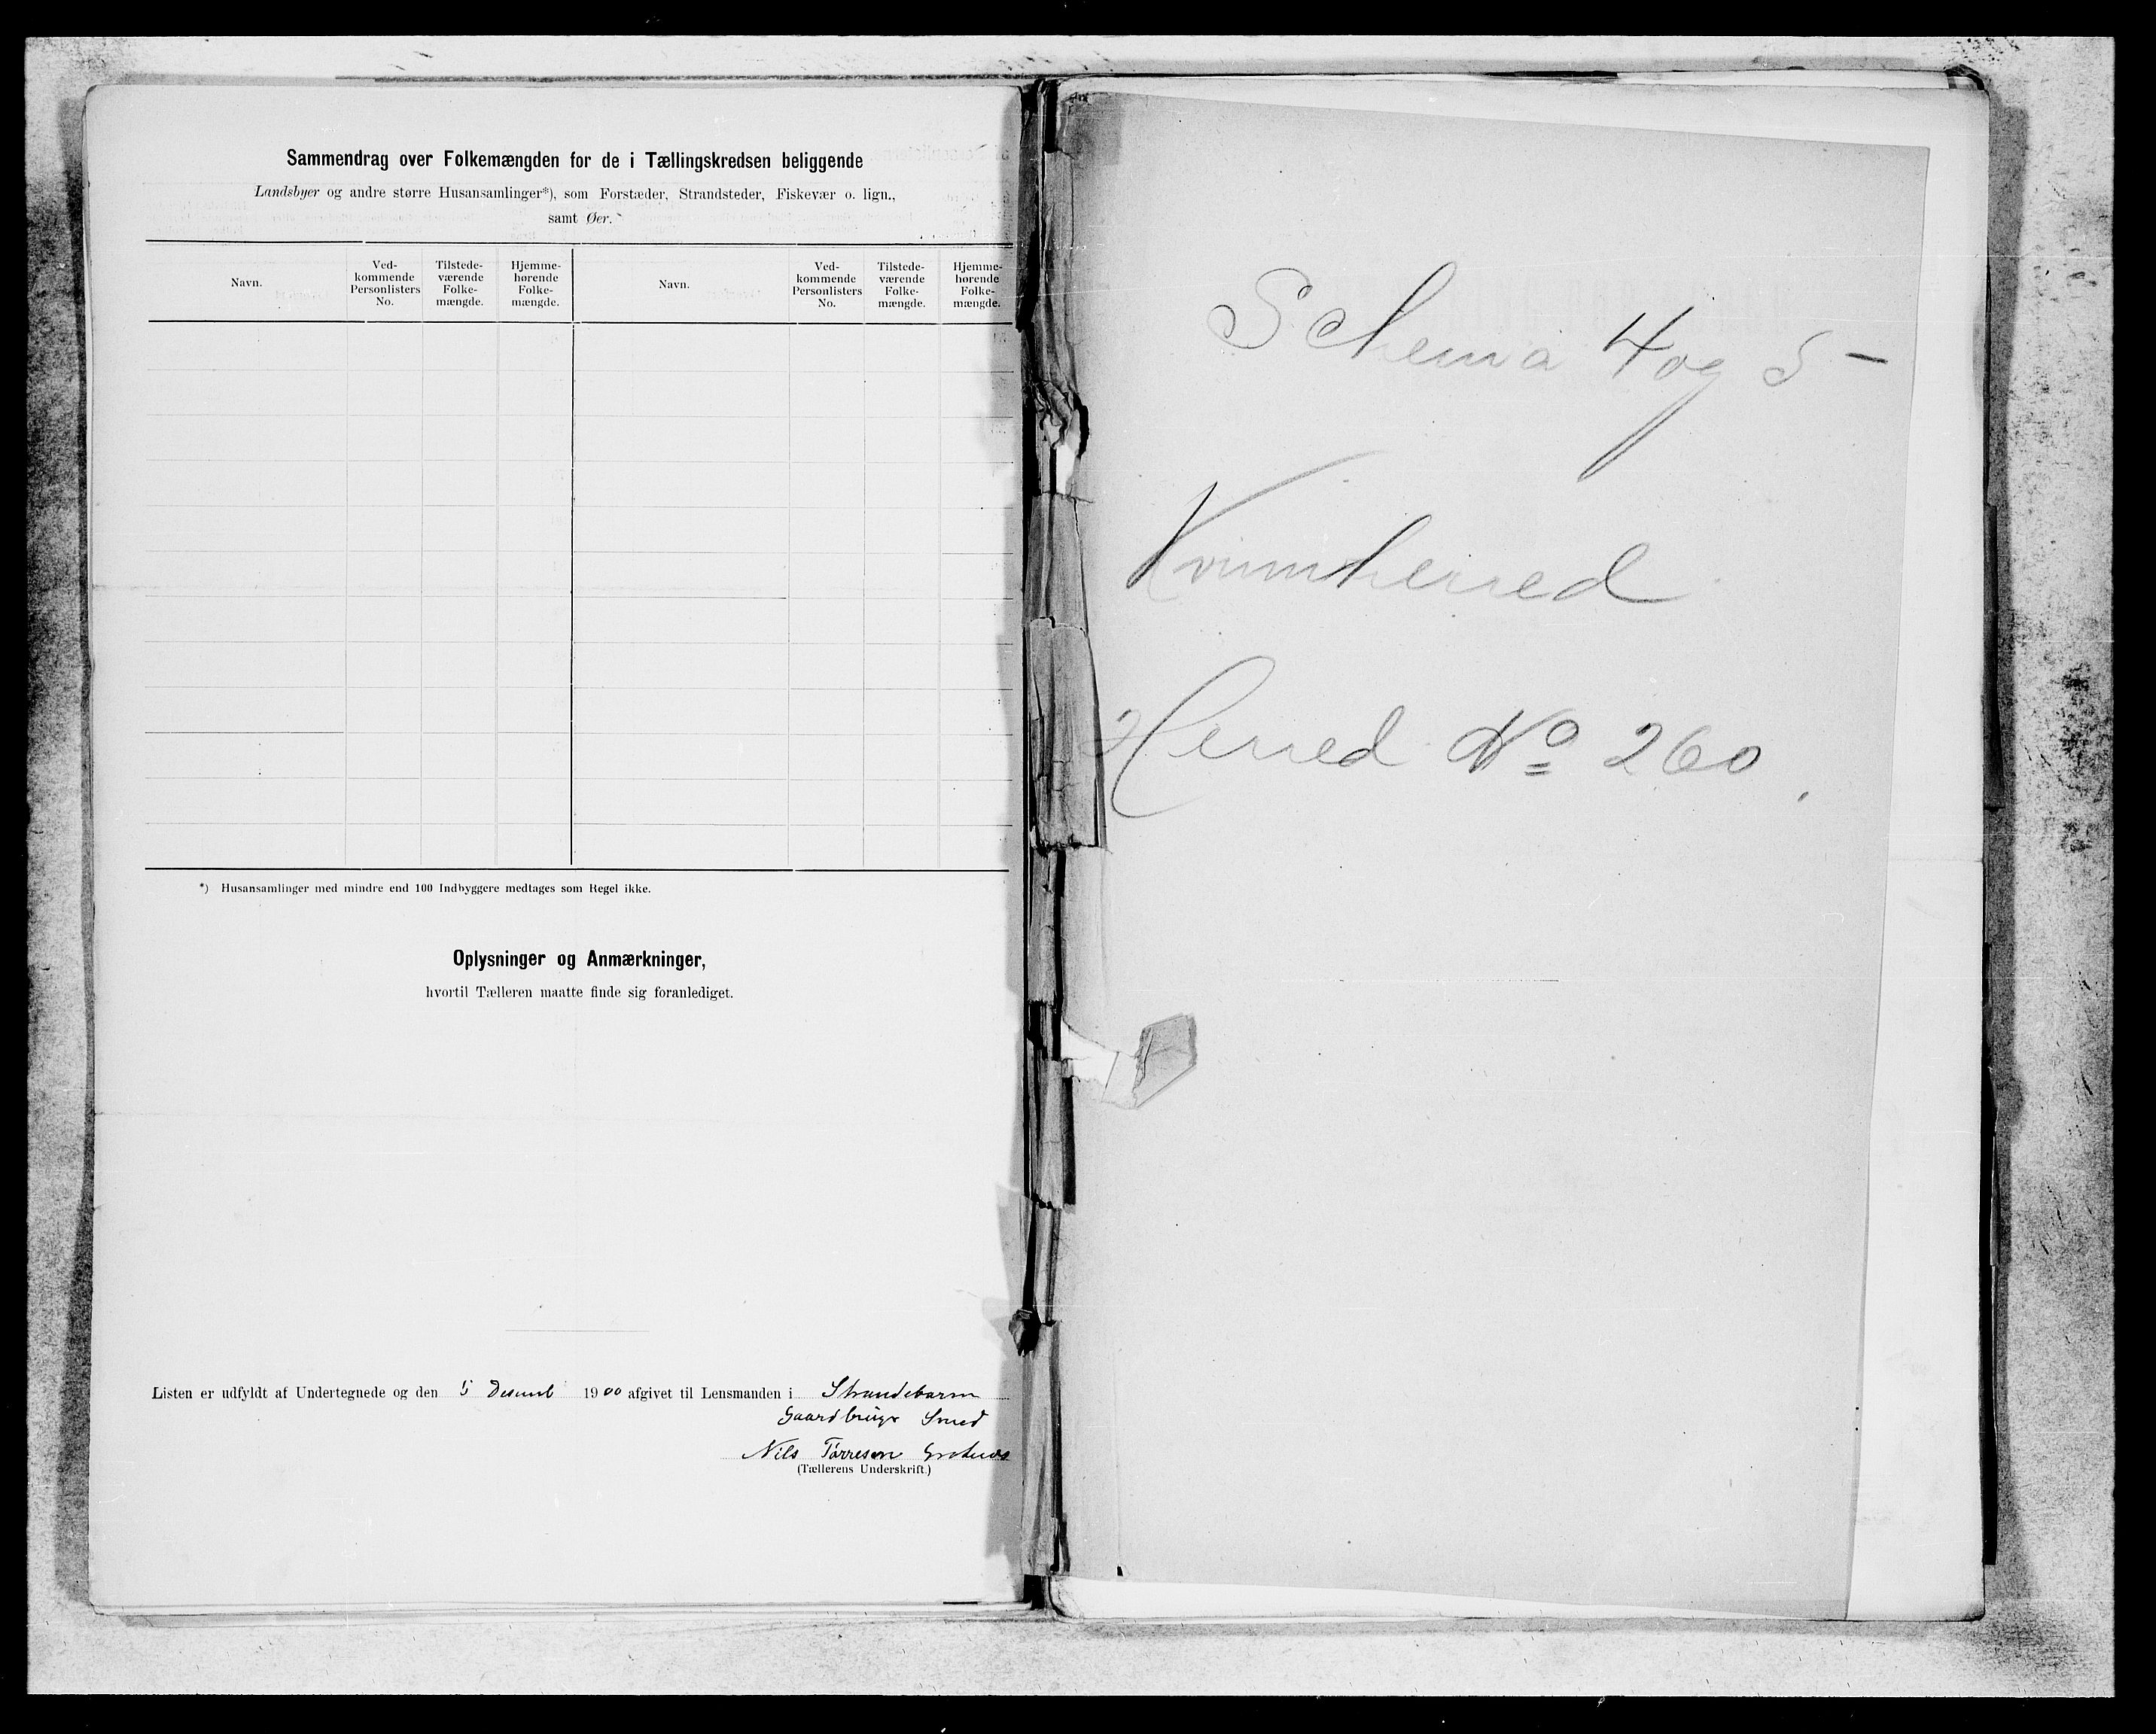 Sammendrag over Folkemængden for de i Tællingskredsen beliggende
Landsbyer og andre større Husansamlinger*), som Forstæder, Strandsteder, Fiskevær o. lign.,
samt Øer.
Navn.
Ved-
kommende
Personlisters
No.
Tilstede-
værende
Folke-
mængde.
Hjemme-
hørende
Folke-
mængde.
Navn.
Ved-
kommende
Personlisters
No.
Tilstede-
værende
Folke-
mængde.
Hjemme-
hørende
Folke-
mængde.
*) Husansamlinger med mindre end 100 Indbyggere medtages som Regel ikke.
Oplysninger og Anmærkninger,
hvortil Tælleren maatte finde sig foranlediget.
Listen er udfyldt af Undertegnede og den 5 1900 afgivet til Lensmanden i Strandebarm
Smed
Nils Tørresen
(Tællerens Underskrift.)
Schema 4 og 5
Kvinnherred
Herred No 260